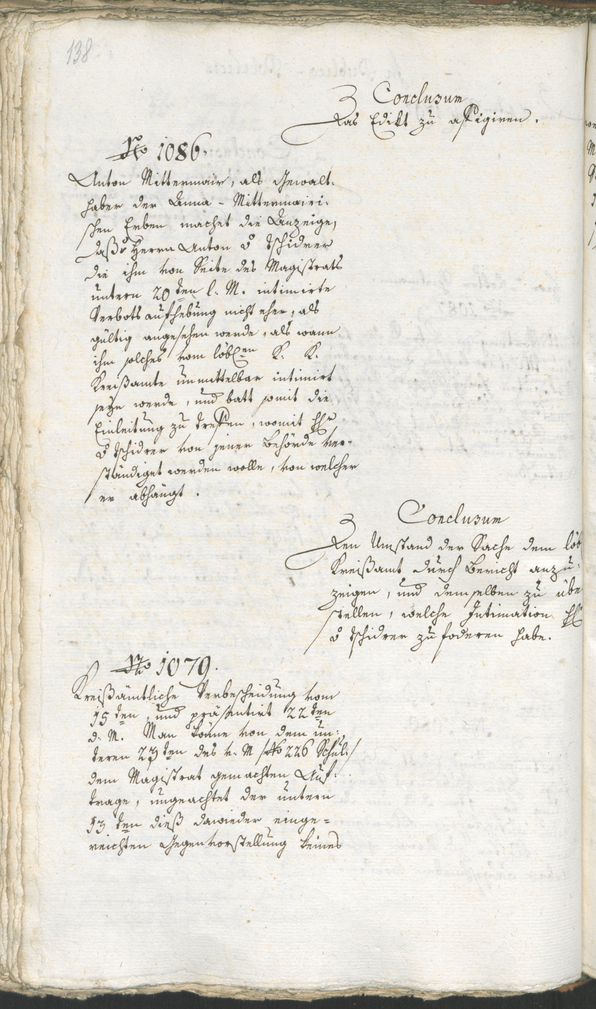 138
Conclusum
Das Edikt zu affigiren.
No 1086.
Anton Mittermair, als Gewalt-
haber der Anna-Mittermairi-
schen Erben machet die Anzeige,
daß Herrn Anton v Tschidrer
die ihm von Seite des Magistrats
untern 20ten l. M. intimirte
Verbotsaufhebung nicht eher, als
gültig angesehen werde, als wann
ihm solches vom löblen K. K.
Kreißamte unmittelbar intimirt
seyn werde, und batt somit die
Einleitung zu treffen, womit H
v Tschidrer von jener Behörde ver-
ständiget werden wolle, von welcher
er abhängt.
Conclusum
Den Umstand der Sache dem löb
Kreißamt durch Bericht anzu-
zeigen, und demselben zu übe
stellen, welche Intimation H
v Tschidrer zu foderen habe.
No 1079.
Kreißämtliche Verbescheidung vom
15ten, und präsentirt 22ten
d. M. Man könne von dem un-
teren 23ten des v. M /: No 226 Schul:/
dem Magistrat gemachten Auf-
trage, ungeachtet der untern
13ten dieß dawieder einge-
reichten Gegenvorstellung keines